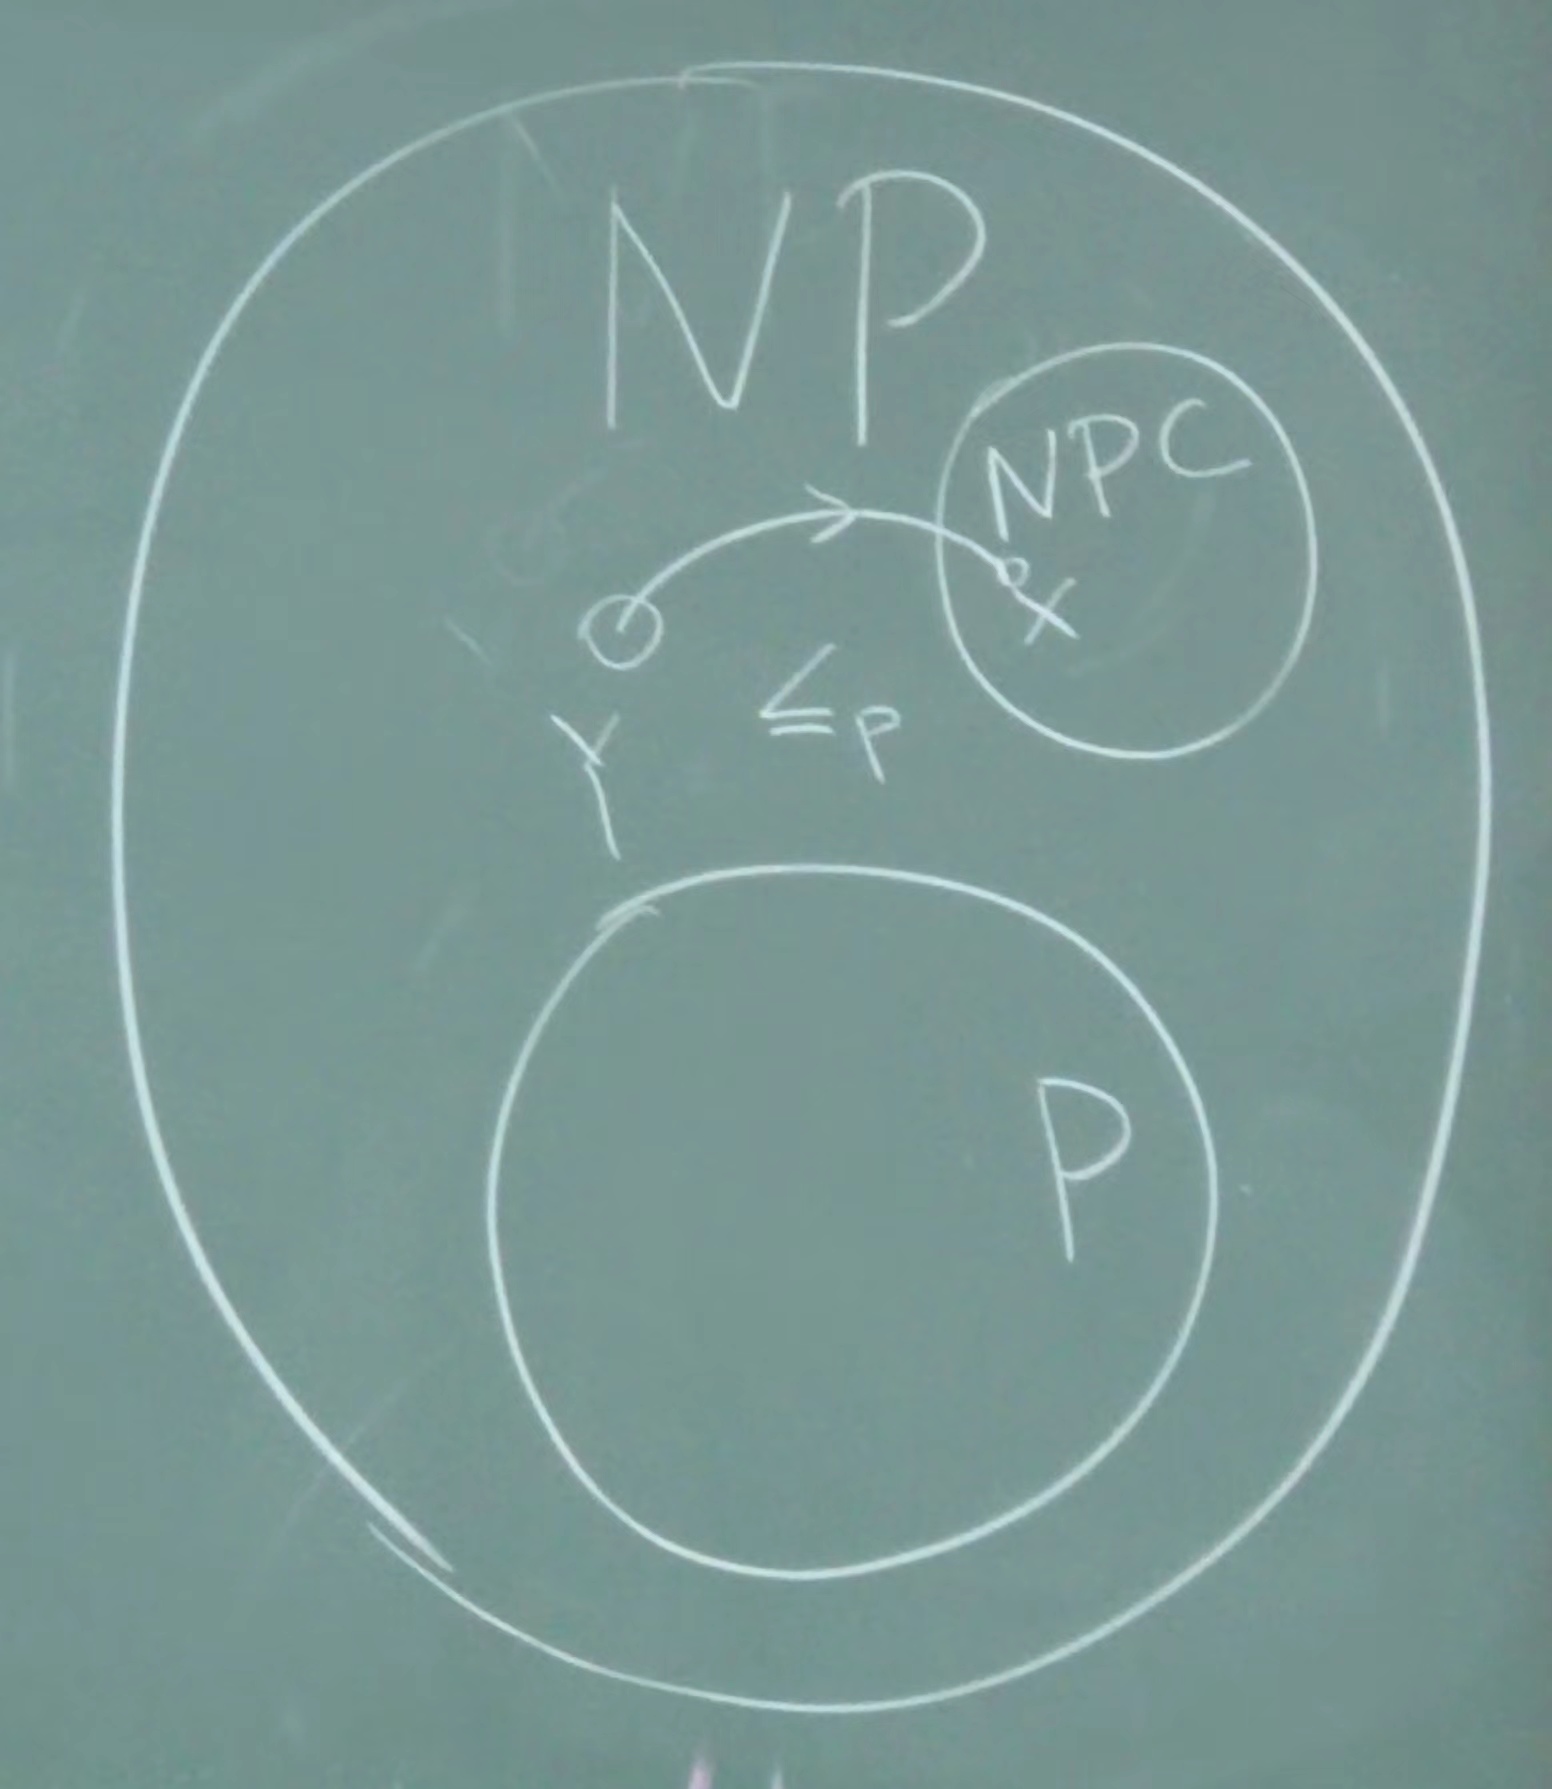 NP
NPC
X
Y ≤p
P